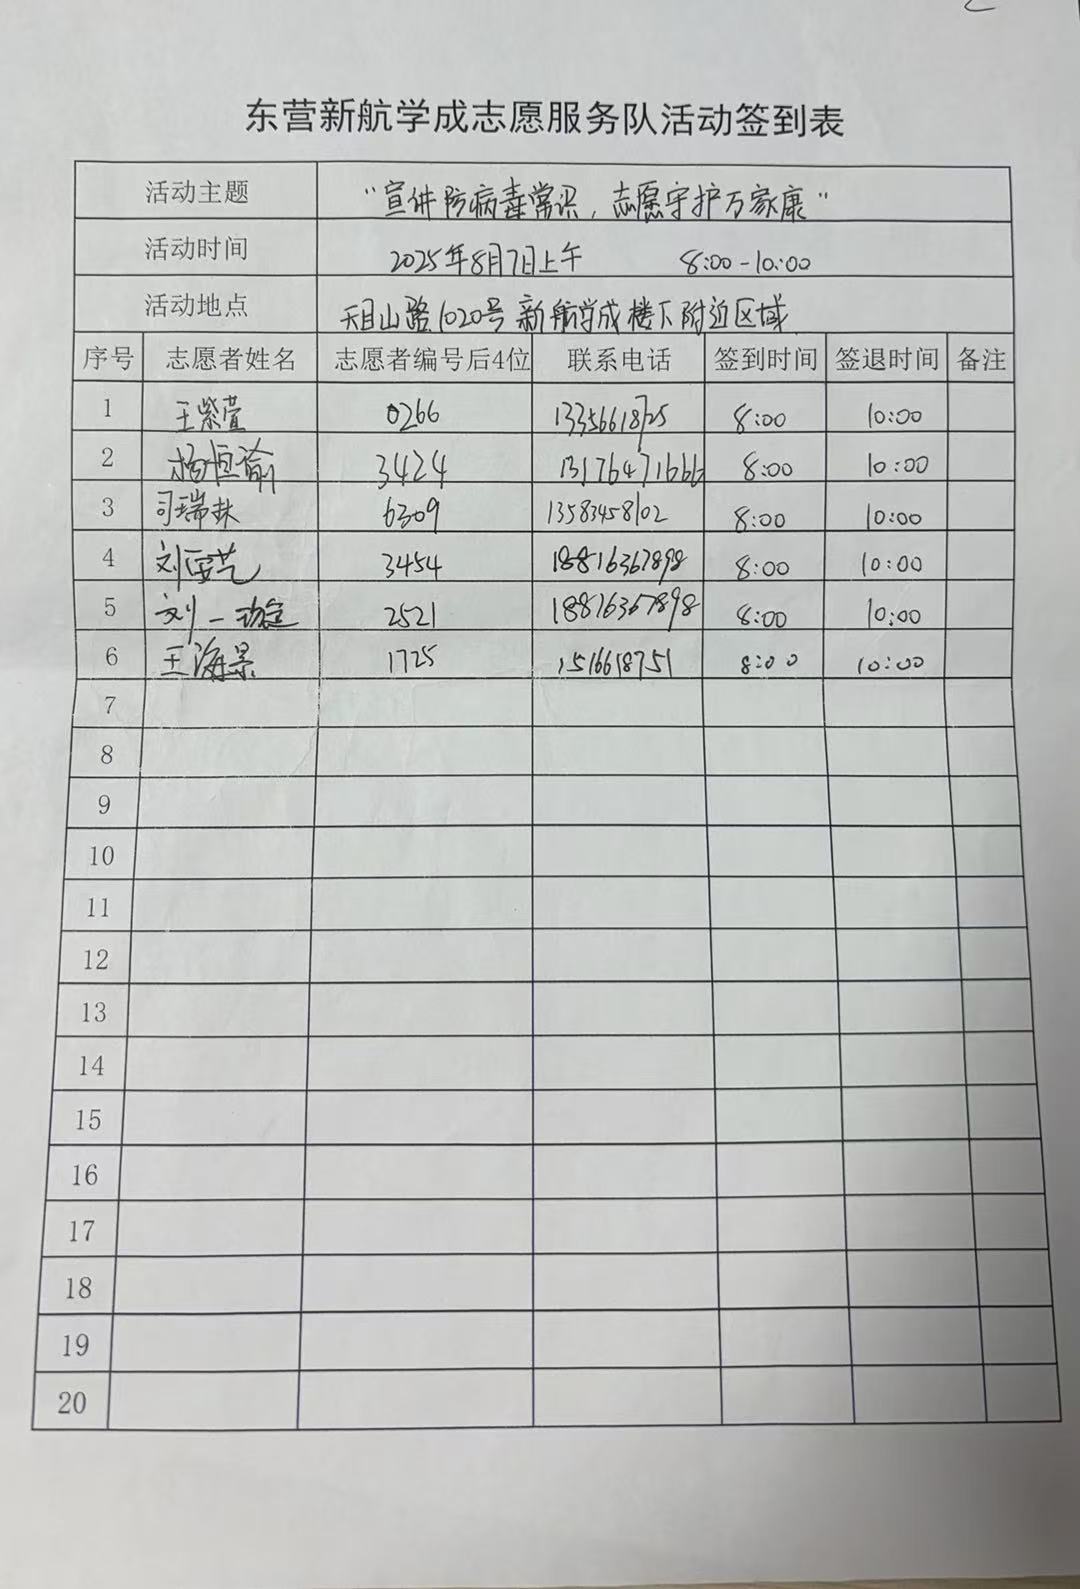 东营新航学成志愿服务队活动签到表
活动主题 "宣传防病毒常识，志愿守护万家康"
活动时间 2025年8月7日上午 8:00-10:00
活动地点 天目山路1020号新航学成楼下附近区域
序号 志愿者姓名 志愿者编号后4位 联系电话 签到时间 签退时间 备注
1 王紫萱 0266 13356618725 8:00 10:00
2 杨恒瑜 3424 13176471666 8:00 10:00
3 司瑞 6309 13583458102 8:00 10:00
4 3454 18816367898 8:00 10:00
5 2521 18816367898 8:00 10:00
6 王海景 1725 1516618751 8:00 10:00
7
8
9
10
11
12
13
14
15
16
17
18
19
20